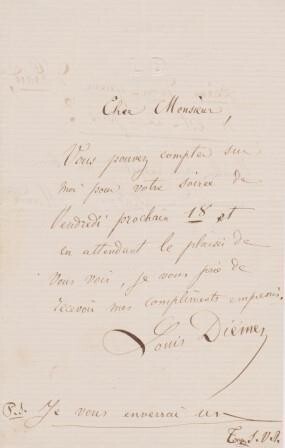 Cher Monsieur,
Vous pouvez compter sur
moi pour votre soirée de
Vendredi prochain 18 et
en attendant le plaisir de
vous voir, je vous prie de
recevoir mes compliments empressés.
Louis Diémer
P.S. Je vous enverrai un
T.S.V.P.